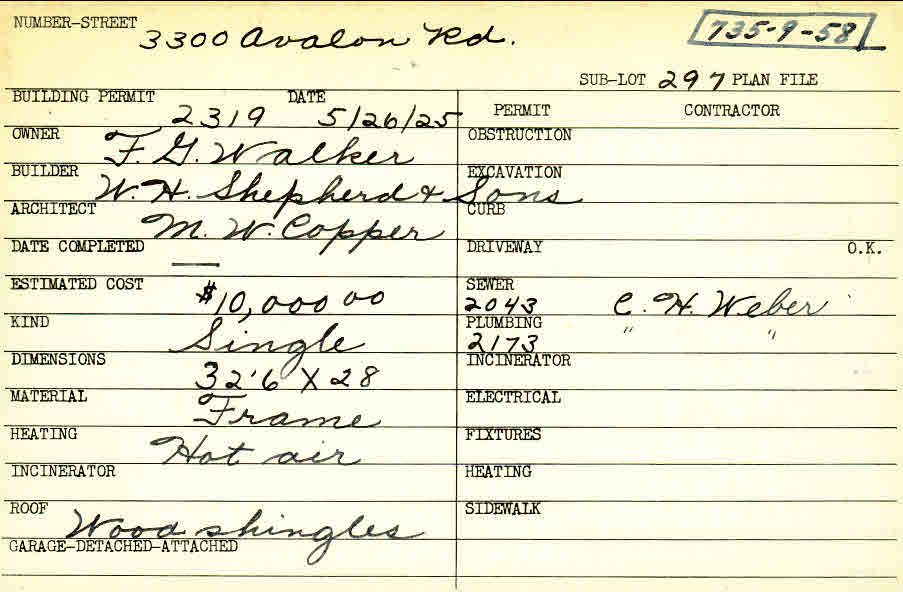 NUMBER-STREET 3300 Avalon Rd. 735-9-58
SUB-LOT 297 PLAN FILE
BUILDING PERMIT 2319 DATE 5/26/25
PERMIT CONTRACTOR
OWNER F. G. Walker
OBSTRUCTION
BUILDER W. H. Shepherd & Sons
EXCAVATION
ARCHITECT M. W. Copper
CURB
DATE COMPLETED —
DRIVEWAY O.K.
ESTIMATED COST $10,000 00
SEWER 2043 C. H. Weber
KIND Single
PLUMBING 2173 " "
DIMENSIONS 32'6 X 28
INCINERATOR
MATERIAL Frame
ELECTRICAL
HEATING Hot air
FIXTURES
INCINERATOR
HEATING
ROOF Wood shingles
SIDEWALK
GARAGE-DETACHED-ATTACHED